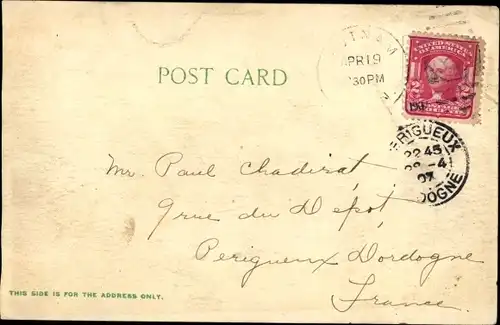 POST CARD
APR 19
30 PM
UNITED STATES
OF AMERICA
2
2
RIGUEUX
22 45
-4
07
DOGNE
Mr. Paul Chadirat
9 rue du Depôt
Perigueux Dordogne
France.
THIS SIDE IS FOR THE ADDRESS ONLY.